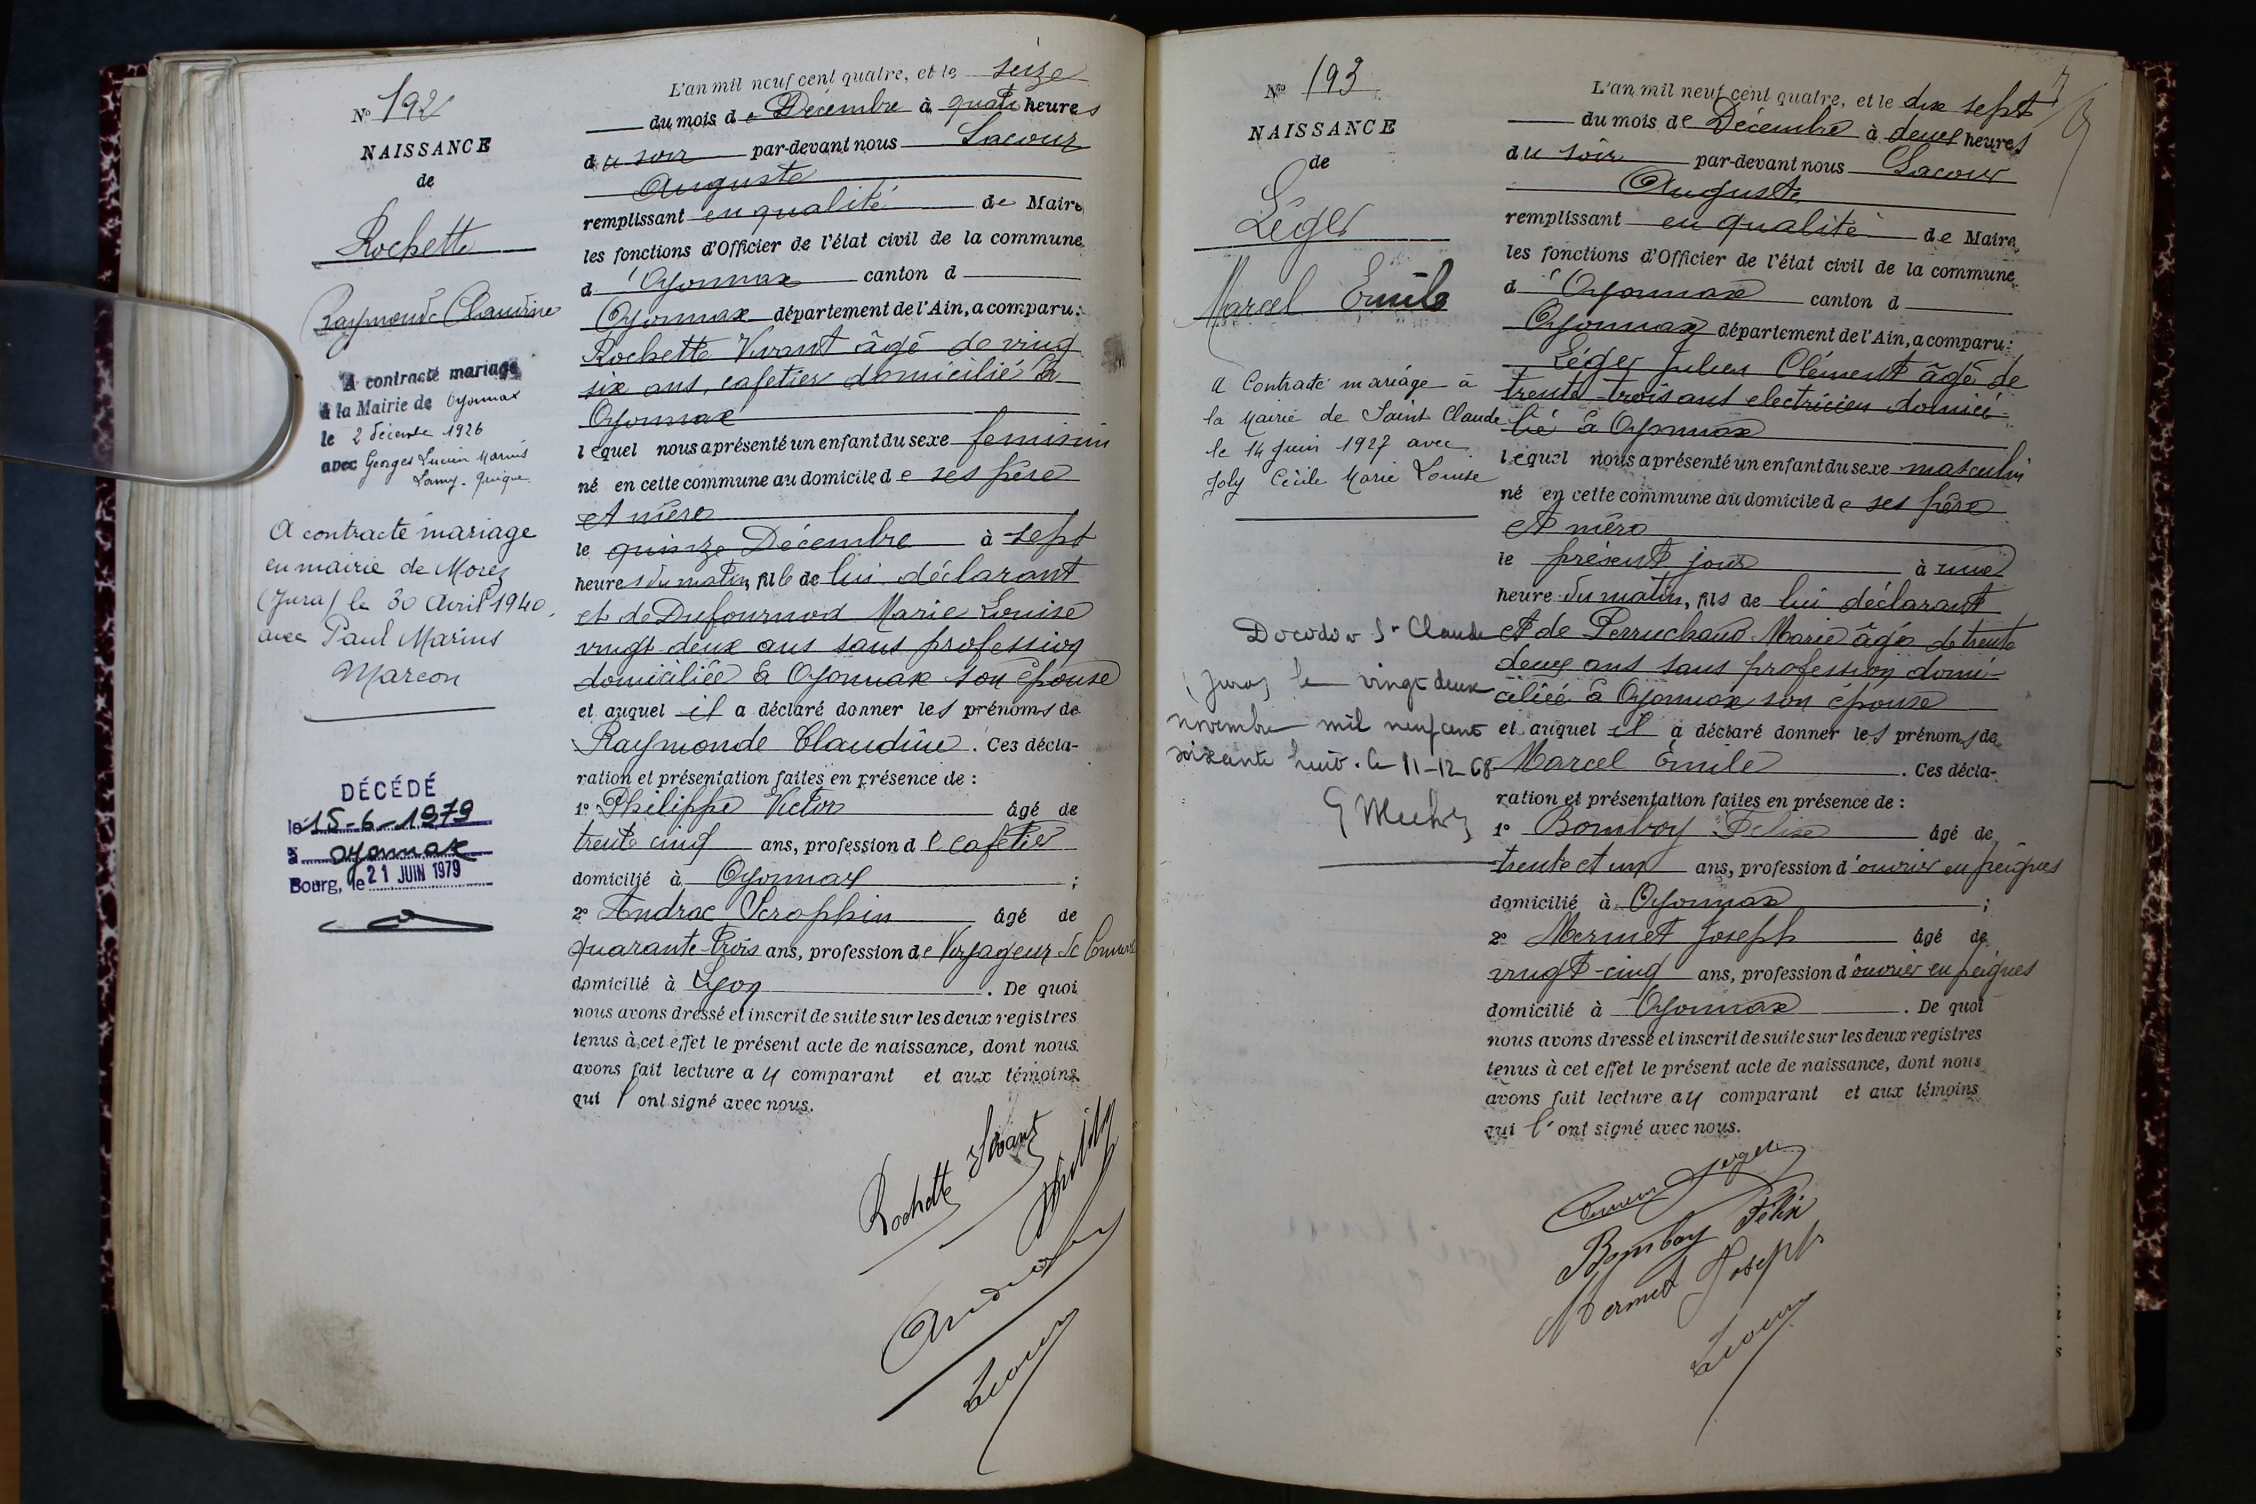 Nº 192
NAISSANCE
de
Rochette
Raymonde Claudine
A contracté mariage
à la Mairie de Oyonnax
le 2 décembre 1926
avec Georges Lucien Marius
A contracté mariage
en mairie de Morez
(Jura) le 30 Avril 1940,
avec Paul Marius
Marcon
DÉCÉDÉ
le 15-6-1979
à Oyonnax
Bourg, le 21 JUIN 1979
L'an mil neuf cent quatre, et le seize
du mois de Décembre à quatre heures
du soir par-devant nous Lacour
Auguste
remplissant en qualité de Maire
les fonctions d'Officier de l'état civil de la commune
d'Oyonnax canton d
Oyonnax département de l'Ain, a comparu:
Rochette Vivant âgé de vingt
six ans, cafetier domicilié à
Oyonnax
lequel nous a présenté un enfant du sexe feminin
né en cette commune au domicile de ses père
et mère
le quinze Décembre à sept
heures du matin, fille de lui déclarant
et de Dufournod Marie Louise
vingt deux ans sans profession
domiciliée à Oyonnax son épouse
et auquel il a déclaré donner les prénoms de
Raymonde Claudine. Ces décla-
ration et présentation faites en présence de :
1º Philippe Victor âgé de
trente cinq ans, profession de cafetier
domicilié à Oyonnax ;
2º Andrac Séraphin âgé de
quarante-trois ans, profession de Voyageur de Commerce
domicilié à Lyon. De quoi
nous avons dressé et inscrit de suite sur les deux registres
tenus à cet effet le présent acte de naissance, dont nous
avons fait lecture au comparant et aux témoins
qui l'ont signé avec nous.
Rochette Vivant
Lacour
Nº 193
NAISSANCE
de
Léger
Marcel Emile
A Contracté mariage à
la Mairie de Saint Claude
le 14 juin 1927 avec
Joly Cécile Marie Louise
Décédé à St Claude
(Jura) le vingt deux
novembre mil neuf cent
soixante huit. le 11-12-68
L'an mil neuf cent quatre, et le dix sept
du mois de Décembre à deux heures
du soir par-devant nous Lacour
Auguste
remplissant en qualité de Maire
les fonctions d'Officier de l'état civil de la commune
d'Oyonnax canton d
Oyonnax département de l'Ain, a comparu:
Léger Julien Clément âgé de
trente-trois ans electricien domici-
lié à Oyonnax
lequel nous a présenté un enfant du sexe masculin
né en cette commune au domicile de ses père
et mère
le présent jour à une
heure du matin, fils de lui déclarant
et de Perruchaud Marie âgée de trente
deux ans sans profession domi-
ciliée à Oyonnax son épouse
et auquel il a déclaré donner les prénoms de
Marcel Emile. Ces décla-
ration et présentation faites en présence de :
1º Bomboy Félix âgé de
trente et un ans, profession d'ouvrier en peignes
domicilié à Oyonnax ;
2º Mermet Joseph âgé de
vingt-cinq ans, profession d'ouvrier en peignes
domicilié à Oyonnax. De quoi
nous avons dressé et inscrit de suite sur les deux registres
tenus à cet effet le présent acte de naissance, dont nous
avons fait lecture au comparant et aux témoins
qui l'ont signé avec nous.
Bomboy Félix
Mermet Joseph
Lacour